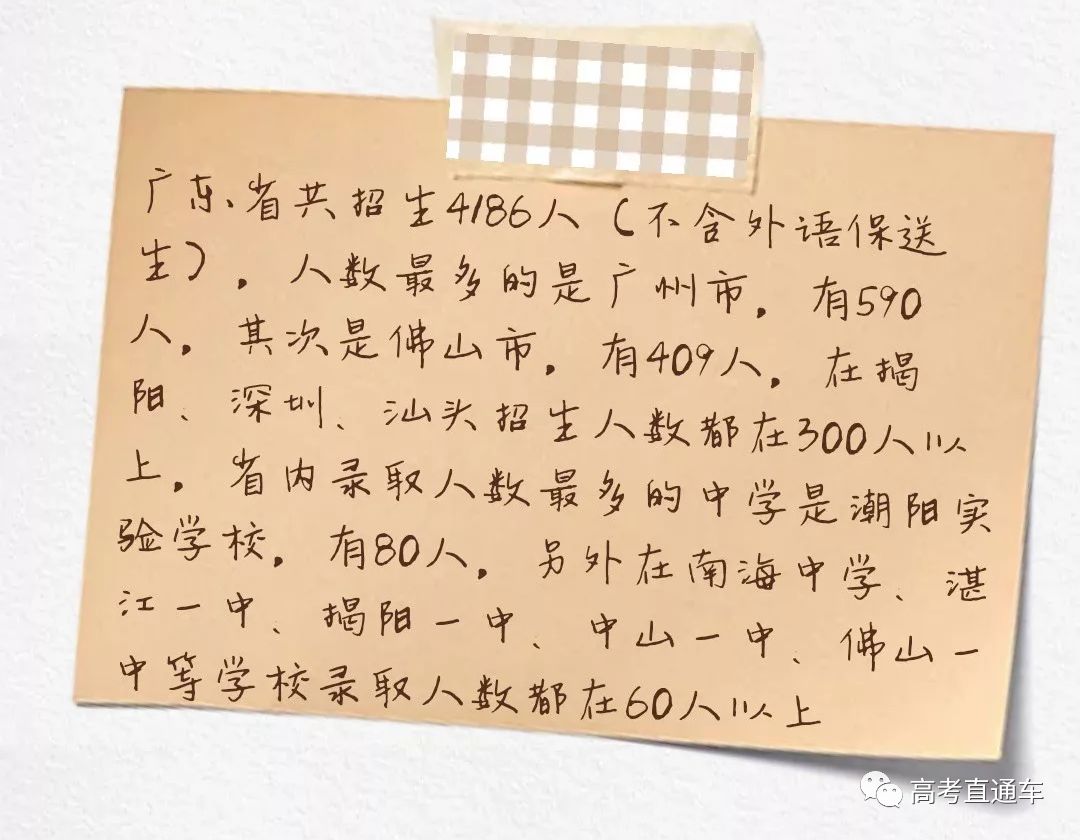 广东省共招生4186人（不含外语保送
生），人数最多的是广州市，有590
人，其次是佛山市，有409人，在揭
阳、深圳、汕头招生人数都在300人以
上，省内录取人数最多的中学是潮阳实
验学校，有80人，另外在南海中学、湛
江一中、揭阳一中、中山一中、佛山一
中等学校录取人数都在60人以上
高考直通车